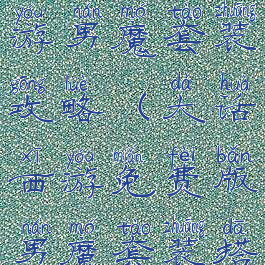 yóu nán mó tào zhuāng
游男魔套装
gōng lüè dà huà
攻略（大话
xī yóu miǎn fèi bǎn
西游免费版
nán mó tào zhuāng dā
男魔套装搭